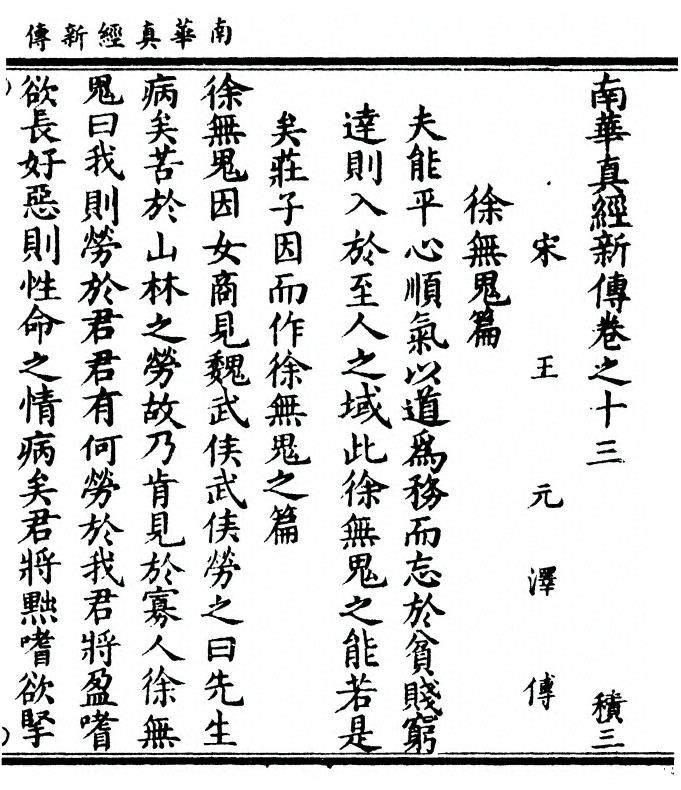 南華真經新傳
南華真經新傳卷之十三 積三
宋王元澤傳
徐無鬼篇
夫能平心順氣以道為務而忘於貧賤窮
達則入於至人之域此徐無鬼之能若是
矣莊子因而作徐無鬼之篇
徐無鬼因女商見魏武侯武侯勞之曰先生
病矣苦於山林之勞故乃肯見於寡人徐無
鬼曰我則勞於君君有何勞於我君將盈嗜
欲長好惡則性命之情病矣君將黜嗜欲掔